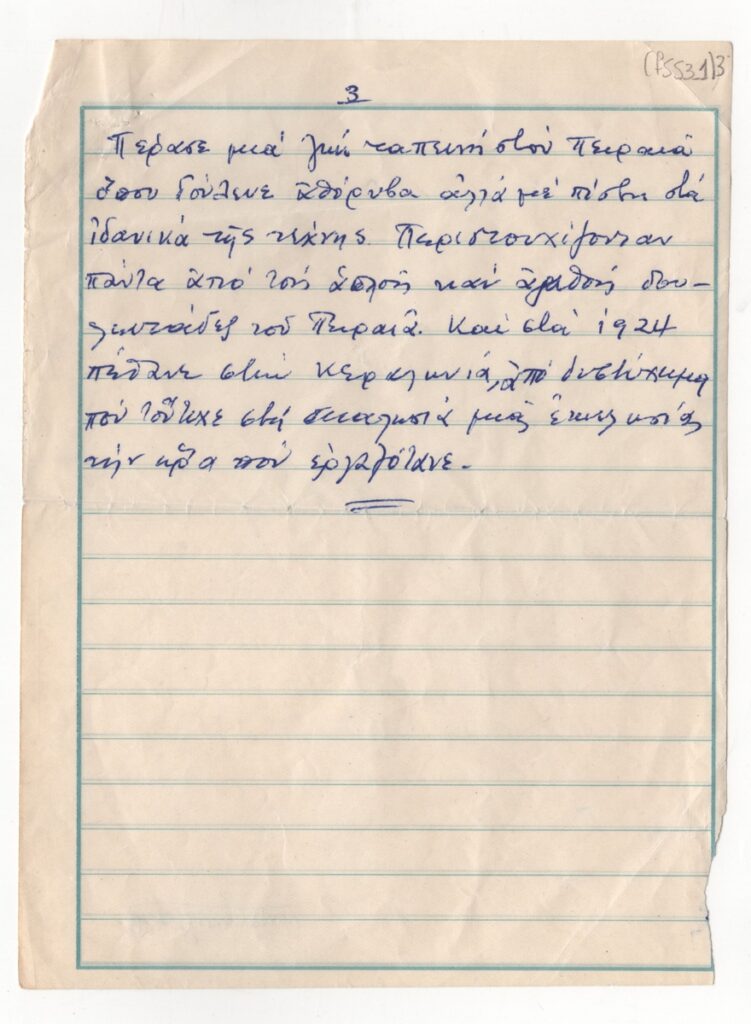 (P5531)3
3
Πέρασε μιά ζωή ταπεινή στόν Πειραιά
ὅπου δούλευε ἀθόρυβα ἀλλά μέ πίστη στά
ἰδανικά τῆς τέχνης. Περιστοιχίζονταν
πάντα ἀπό τούς ἁπλούς καί ἀγαθούς δου-
λευτάδες τοῦ Πειραιᾶ. Καί στά 1924
πέθανε στήν Κεφαλωνιά, ἀπό δυστύχημα
πού τοὔτυχε στή σκαλωσιά μιᾶς ἐκκλησιᾶς
τήν ὥρα πού ἐργαζότανε.